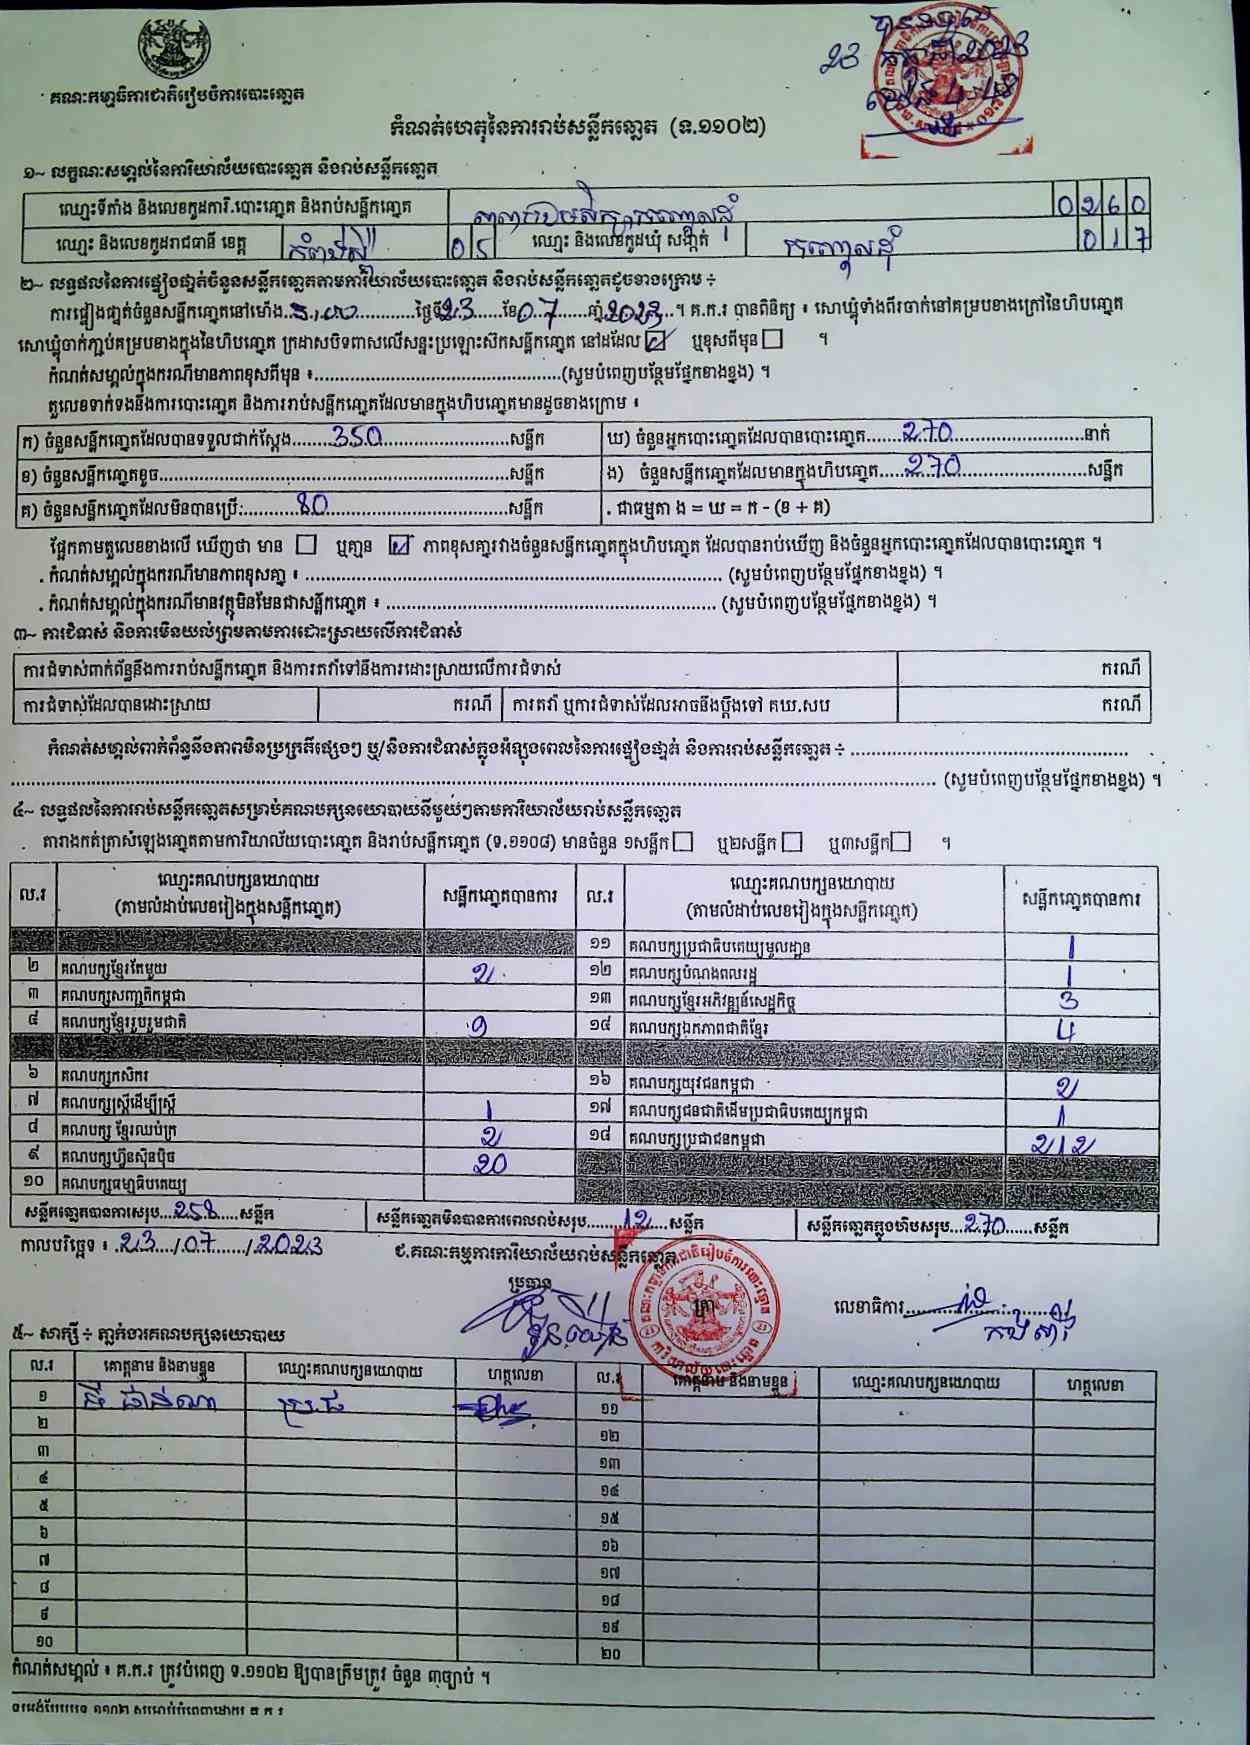 គណៈកម្មាធិការជាតិរៀបចំការបោះឆ្នោត
23 កក្កដា 2023
កំណត់ហេតុនៃការរាប់សន្លឹកឆ្នោត (ទ.១១០២)
១~ លក្ខណៈសម្គាល់នៃការិយាល័យបោះឆ្នោត និងរាប់សន្លឹកឆ្នោត
ឈ្មោះទីតាំង និងលេខកូដការិ.បោះឆ្នោត និងរាប់សន្លឹកឆ្នោត 0260
ឈ្មោះ និងលេខកូដរាជធានី ខេត្ត កំពង់ស្ពឺ 05 ឈ្មោះ និងលេខកូដឃុំ សង្កាត់ 017
២~ លទ្ធផលនៃការផ្ទៀងផ្ទាត់ចំនួនសន្លឹកឆ្នោតតាមការិយាល័យបោះឆ្នោត និងរាប់សន្លឹកឆ្នោតដូចខាងក្រោម ÷
ការផ្ទៀងផ្ទាត់ចំនួនសន្លឹកឆ្នោតនៅម៉ោង 3:00 ថ្ងៃទី 23 ខែ 07 ឆ្នាំ 2023 ។ គ.ក.រ បានពិនិត្យ ៖ សោឃ្លុំទាំងពីរចាក់នៅគម្របខាងក្រៅនៃហិបឆ្នោត
សោឃ្លុំចាក់ភ្ជាប់គម្របខាងក្នុងនៃហិបឆ្នោត ក្រដាសបិទពាសលើសន្ទះប្រឡោះស៊កសន្លឹកឆ្នោត នៅដដែល ☑ ឬខុសពីមុន ☐ ។
កំណត់សម្គាល់ក្នុងករណីមានភាពខុសពីមុន ៖ (សូមបំពេញបន្ថែមផ្នែកខាងខ្នង) ។
តួលេខទាក់ទងនឹងការបោះឆ្នោត និងការរាប់សន្លឹកឆ្នោតដែលមានក្នុងហិបឆ្នោតមានដូចខាងក្រោម ៖
ក) ចំនួនសន្លឹកឆ្នោតដែលបានទទួលជាក់ស្តែង 350 សន្លឹក ឃ) ចំនួនអ្នកបោះឆ្នោតដែលបានបោះឆ្នោត 270 នាក់
ខ) ចំនួនសន្លឹកឆ្នោតខូច សន្លឹក ង) ចំនួនសន្លឹកឆ្នោតដែលមានក្នុងហិបឆ្នោត 270 សន្លឹក
គ) ចំនួនសន្លឹកឆ្នោតដែលមិនបានប្រើ: 80 សន្លឹក . ជាធម្មតា ង = ឃ = ក - (ខ + គ)
ផ្អែកតាមតួលេខខាងលើ ឃើញថា មាន ☐ ឬគ្មាន ☑ ភាពខុសគ្នារវាងចំនួនសន្លឹកឆ្នោតក្នុងហិបឆ្នោត ដែលបានរាប់ឃើញ និងចំនួនអ្នកបោះឆ្នោតដែលបានបោះឆ្នោត ។
. កំណត់សម្គាល់ក្នុងករណីមានភាពខុសគ្នា ៖ (សូមបំពេញបន្ថែមផ្នែកខាងខ្នង) ។
. កំណត់សម្គាល់ក្នុងករណីមានវត្ថុមិនមែនជាសន្លឹកឆ្នោត ៖ (សូមបំពេញបន្ថែមផ្នែកខាងខ្នង) ។
៣~ ការជំទាស់ និងការមិនយល់ព្រមតាមការដោះស្រាយលើការជំទាស់
ការជំទាស់ពាក់ព័ន្ធនឹងការរាប់សន្លឹកឆ្នោត និងការតវ៉ាទៅនឹងការដោះស្រាយលើការជំទាស់ ករណី
ការជំទាស់ដែលបានដោះស្រាយ ករណី ការតវ៉ា ឬការជំទាស់ដែលអាចនឹងប្តឹងទៅ គឃ.សប ករណី
កំណត់សម្គាល់ពាក់ព័ន្ធនឹងភាពមិនប្រក្រតីផ្សេងៗ ឬ/និងការជំទាស់ក្នុងអំឡុងពេលនៃការផ្ទៀងផ្ទាត់ និងការរាប់សន្លឹកឆ្នោត ÷
(សូមបំពេញបន្ថែមផ្នែកខាងខ្នង) ។
៤~ លទ្ធផលនៃការរាប់សន្លឹកឆ្នោតសម្រាប់គណបក្សនយោបាយនីមួយៗតាមការិយាល័យរាប់សន្លឹកឆ្នោត
តារាងកត់ត្រាសំឡេងឆ្នោតតាមការិយាល័យបោះឆ្នោត និងរាប់សន្លឹកឆ្នោត (ទ.១១០៨) មានចំនួន ១សន្លឹក ☐ ឬ២សន្លឹក ☐ ឬ៣សន្លឹក ☐ ។
ល.រ ឈ្មោះគណបក្សនយោបាយ (តាមលំដាប់លេខរៀងក្នុងសន្លឹកឆ្នោត) សន្លឹកឆ្នោតបានការ ល.រ ឈ្មោះគណបក្សនយោបាយ (តាមលំដាប់លេខរៀងក្នុងសន្លឹកឆ្នោត) សន្លឹកឆ្នោតបានការ
១១ គណបក្សប្រជាធិបតេយ្យមូលដ្ឋាន 1
២ គណបក្សខ្មែរតែមួយ 2 ១២ គណបក្សបំណងពលរដ្ឋ 1
៣ គណបក្សសញ្ជាតិកម្ពុជា ១៣ គណបក្សខ្មែរអភិវឌ្ឍន៍សេដ្ឋកិច្ច 3
៤ គណបក្សខ្មែររួបរួមជាតិ 9 ១៤ គណបក្សឯកភាពជាតិខ្មែរ 4
៦ គណបក្សកសិករ ១៦ គណបក្សយុវជនកម្ពុជា 2
៧ គណបក្សស្ត្រីដើម្បីស្ត្រី 1 ១៧ គណបក្សជនជាតិដើមប្រជាធិបតេយ្យកម្ពុជា 1
៨ គណបក្ស ខ្មែរឈប់ក្រ 2 ១៨ គណបក្សប្រជាជនកម្ពុជា 212
៩ គណបក្សហ្វ៊ុនស៊ិនប៉ិច 20
១០ គណបក្សធម្មាធិបតេយ្យ
សន្លឹកឆ្នោតបានការសរុប 258 សន្លឹក សន្លឹកឆ្នោតមិនបានការពេលរាប់សរុប 12 សន្លឹក សន្លឹកឆ្នោតក្នុងហិបសរុប 270 សន្លឹក
កាលបរិច្ឆេទ ៖ 23/07/2023 ជ.គណៈកម្មការការិយាល័យរាប់សន្លឹកឆ្នោត
ប្រធាន
លេខាធិការ
៥~ សាក្សី ÷ ភ្នាក់ងារគណបក្សនយោបាយ
ល.រ គោត្តនាម និងនាមខ្លួន ឈ្មោះគណបក្សនយោបាយ ហត្ថលេខា ល.រ គោត្តនាម និងនាមខ្លួន ឈ្មោះគណបក្សនយោបាយ ហត្ថលេខា
១ ប្រ.ជ ១១
២ ១២
៣ ១៣
៤ ១៤
៥ ១៥
៦ ១៦
៧ ១៧
៨ ១៨
៩ ១៩
១០ ២០
កំណត់សម្គាល់ ៖ គ.ក.រ ត្រូវបំពេញ ទ.១១០២ ឱ្យបានត្រឹមត្រូវ ចំនួន ៣ច្បាប់ ។